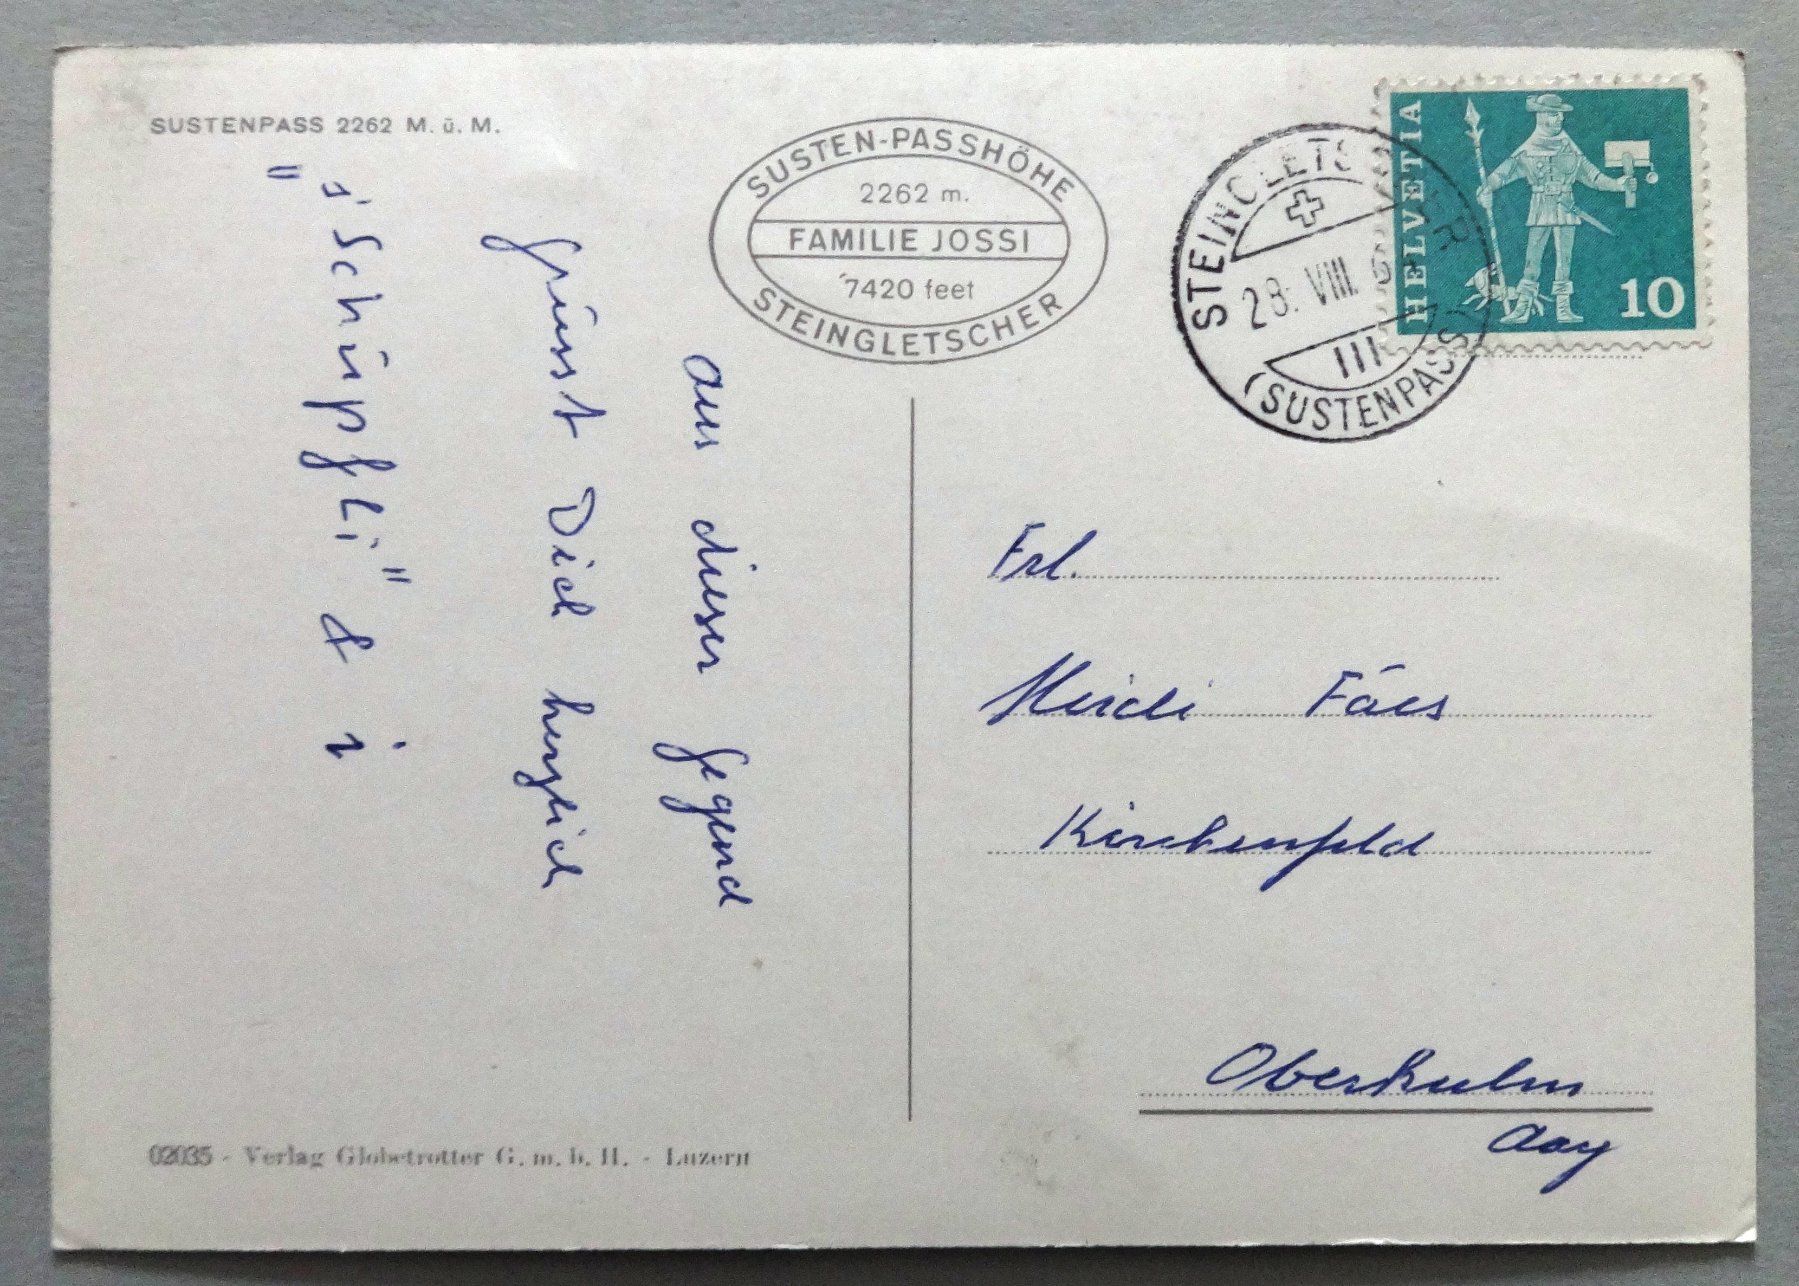 SUSTENPASS 2262 M. ü. M.
SUSTEN-PASSHÖHE
2262 m.
FAMILIE JOSSI
7420 feet
STEINGLETSCHER
STEINGLETSCHER
28. VIII. 6
III
(SUSTENPASS)
HELVETIA
10
aus dieser Gegend
grüsst Dich herzlich
"s'Schüpfli" & i
Frl.
Heidi Fäes
Kirchenfeld
Oberkulm
Aarg
02035 - Verlag Globetrotter G. m. b. H. - Luzern